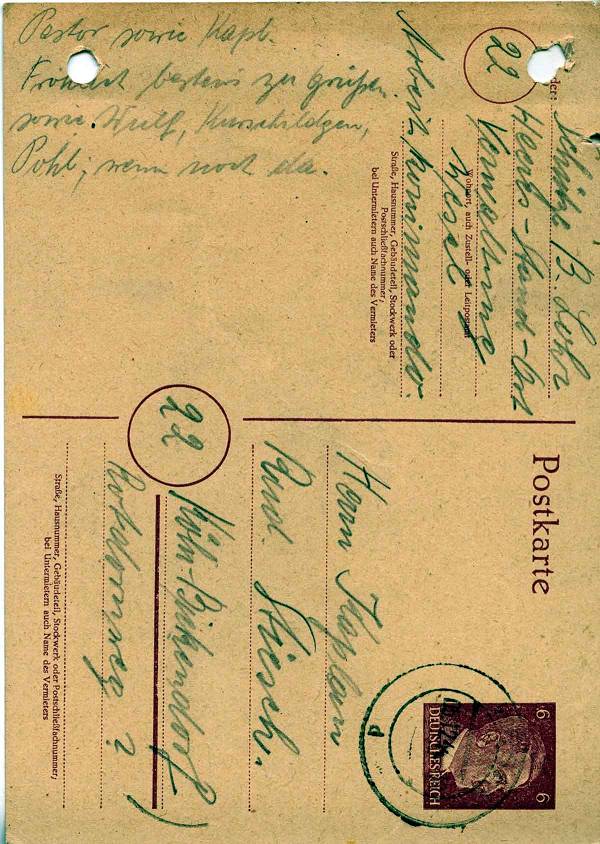 Pastor sowie Kapl.
Fröhlich bestens zu grüßen
sowie Wulf,
Pohl; wenn noch da.
22
Schütze B. Lohr
Heeres-Stand-Ort
Verwaltung
Wesel
Arbeits Kommando.
Wohnort, auch Zustell- oder Leitpostamt
Straße, Hausnummer, Gebäudeteil, Stockwerk oder
Postschließfachnummer;
bei Untermietern auch Name des Vermieters
Postkarte
6 6
DEUTSCHES REICH
d
Herrn Kaplan
Rud. Stiesch.
22
Köln-Bickendorf
Rotdornweg 2
Straße, Hausnummer, Gebäudeteil, Stockwerk oder Postschließfachnummer;
bei Untermietern auch Name des Vermieters